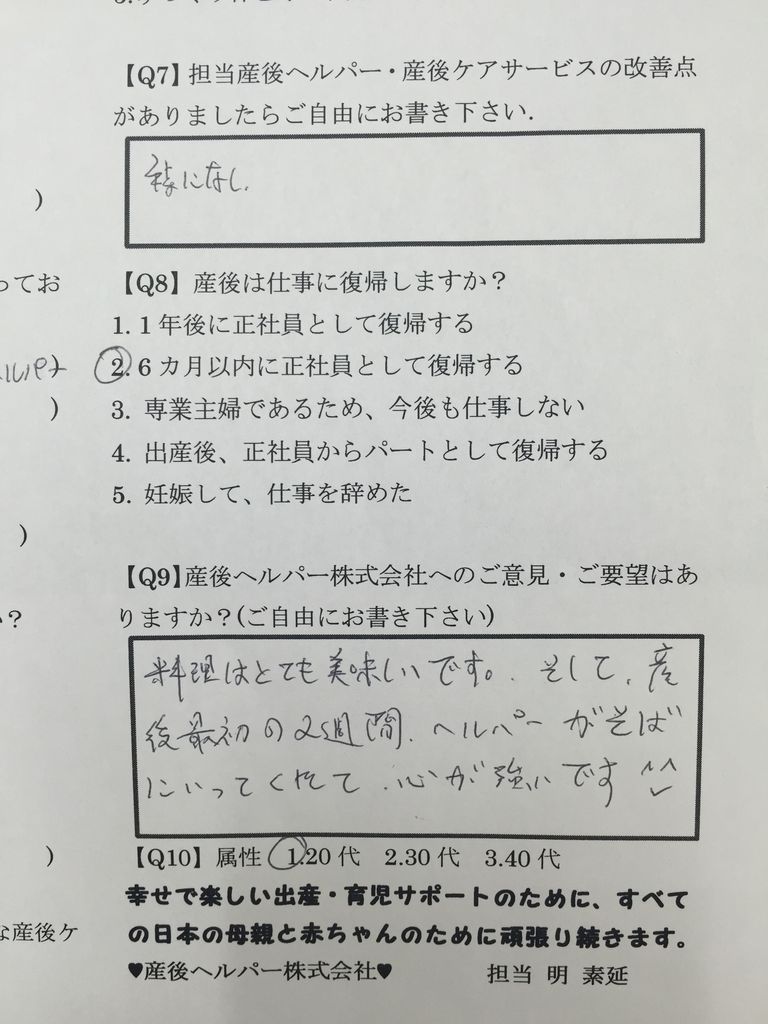 【Q7】担当産後ヘルパー・産後ケアサービスの改善点
がありましたらご自由にお書き下さい.
様になし.
)
ってお
【Q8】産後は仕事に復帰しますか？
1. 1年後に正社員として復帰する
ヘルパナ
2. 6カ月以内に正社員として復帰する
)
3. 専業主婦であるため、今後も仕事しない
4. 出産後、正社員からパートとして復帰する
5. 妊娠して、仕事を辞めた
)
【Q9】産後ヘルパー株式会社へのご意見・ご要望はあ
か？
りますか？(ご自由にお書き下さい)
料理はとても美味しいです。そして、産
後最初の2週間、ヘルパーがそば
にいってくれて、心が強いです ^^
)
【Q10】属性 1.20代 2.30代 3.40代
幸せで楽しい出産・育児サポートのために、すべて
な産後ケ
の日本の母親と赤ちゃんのために頑張り続きます。
♥産後ヘルパー株式会社♥ 担当 明 素延